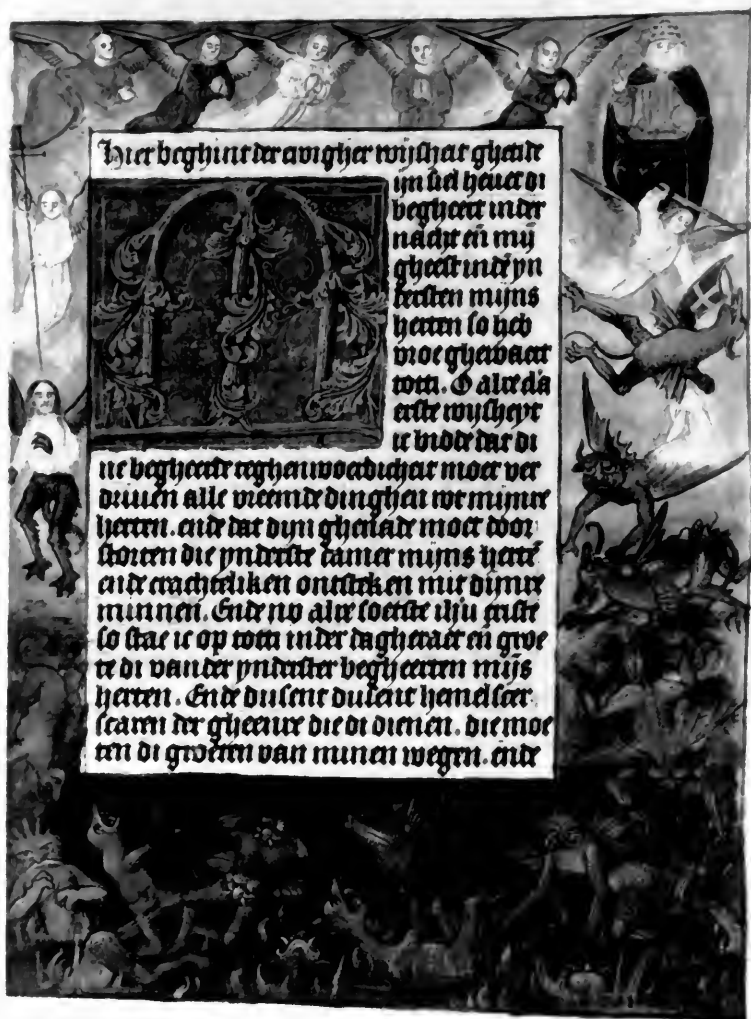 Hier beghint der ewigher wijsheit ghetide
ijn siel heuet di
begheert inder
nacht en̄ mij
gheest indē yn
dersten mijns
herten so heb
vroe ghewaect
totti. O alre d'a
erste wijsheyt
ic bidde dat di
ne begheerde teghenwoerdicheit moet ver
driuen alle vreemde dinghen wt mijnre
herten. ende dat dijn ghenade moet door
storten die ynderste camer mijns hertē
ende crachteliken ontsteken mit dijnre
minnen. Ende nv alre soetste ihū criste
so stae ic op totti inder dagheraet en̄ groe
te di van der ynderster begheerten mijs
herten. Ende dusent dusent hemelscer
scaren der gheenre die di dienen. die moe
ten di groeten van minen wegen. ende